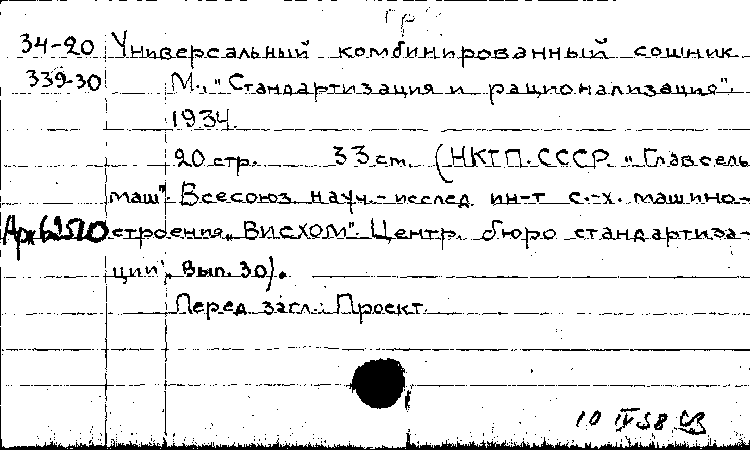 Гр
34-20 Универсальный комбинированный сошник
339-30 М., "Стандартизация и рационализация".
1934.
20 стр. 33 см. (НКТП. СССР. "Главсель
маш". Всесоюз. науч.-исслед. ин-т с.-х. машино-
строения „ВИСХОМ". Центр. бюро стандартиза-
ции", Вып. 30).
Перед загл.: Проект.
10 IV 58